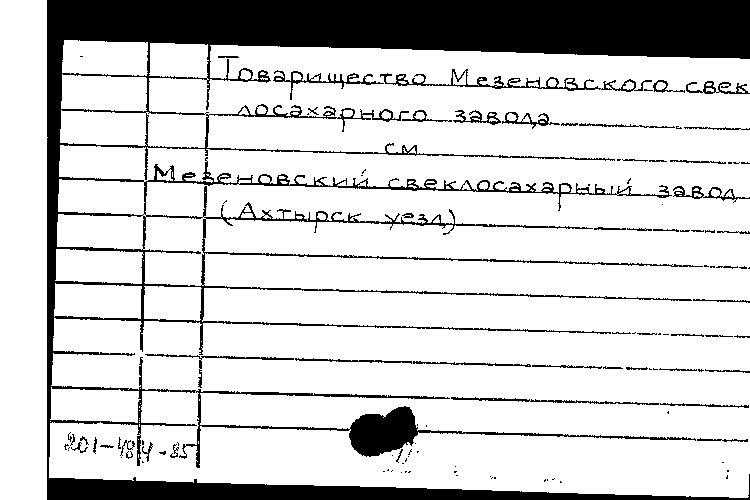 Товарищество Мезеновского свек
лосахарного завода
см
Мезеновский свеклосахарный завод
(Ахтырск уезд)
201-484-85